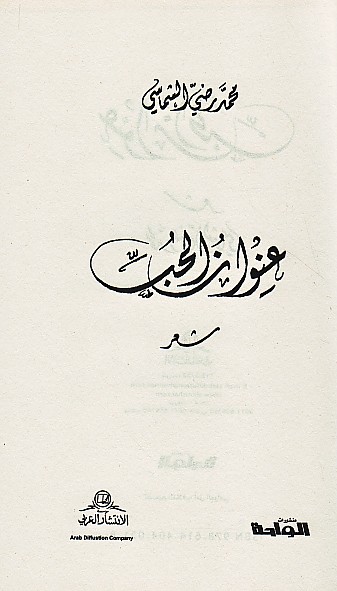 محمد رضي الشماسي
عنوان الحبّ
شعر
الانتشار العربي
Arab Diffustion Company
منشورات
الواحة